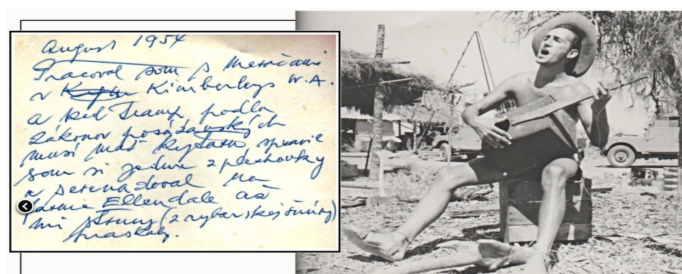 August 1954
Pracoval som s meračami
v Kimberleys W.A.
a keď Tramp podla
zákonov
musí mať kytaru, spravil
som si jednu z plechovky
a serenadoval na
farme Ellendale až
mi struny (z rybarskej šnúry)
praskaly.